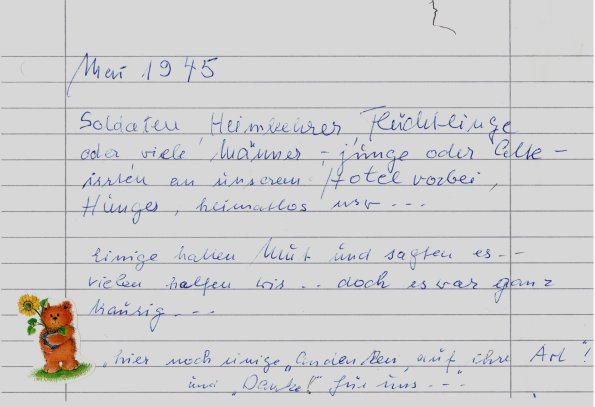 Mai 1945
Soldaten, Heimkehrer, Flüchtlinge
oder viele Männer - junge oder Alte -
irrten an unserem Hotel vorbei,
Hunger, heimatlos usw - - -
Einige hatten Mut und sagten es - -
vielen halfen wir . . doch es war ganz
traurig - - -
"hier noch einige "Andenken, auf ihre Art"!
und "Danke!" für uns - - -"